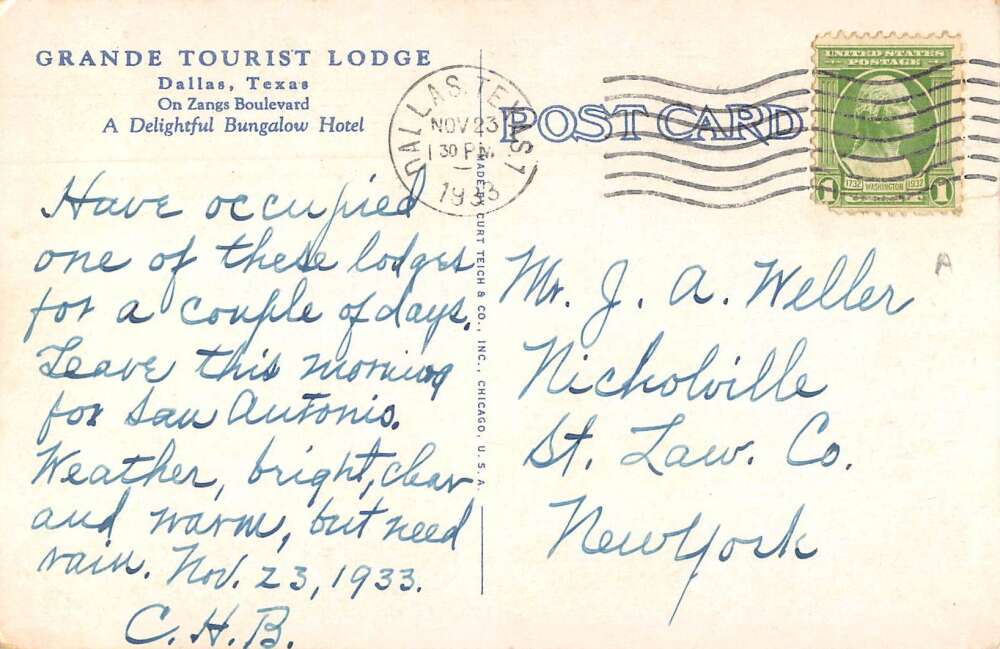 GRANDE TOURIST LODGE
Dallas, Texas
On Zangs Boulevard
A Delightful Bungalow Hotel
POST CARD
DALLAS, TEXAS. 1
NOV 23
1 30 PM
1933
UNITED STATES
POSTAGE
1732 WASHINGTON 1932
1 1
Have occupied
one of these lodges
for a couple of days.
Leave this morning
for San Antonio.
Weather, bright, clear
and warm, but need
rain. Nov. 23, 1933.
C. H. B.
MADE BY CURT TEICH & CO., INC., CHICAGO, U. S. A.
Mr. J. A. Weller
Nicholville
St. Law. Co.
New York
A